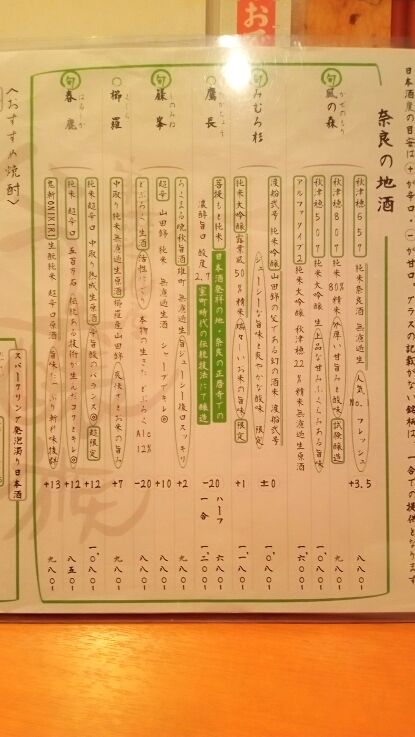 おで
日本酒度の目安は(+)が辛口、(-)が甘
一合での提供となります
奈良の地酒
旬 風の森
かぜのもり
秋津穂657 純米 無濾過生 人気No. フレッシュ +3.5 八八〇-
秋津穂807 純米 80%精米 甘旨みと酸味 試験醸造 九八〇-
秋津穂507 純米大吟醸 生 上品な甘み ふくらみある旨味 一、〇八〇-
アルファタイプ2 純米大吟醸 秋津穂22%精米無濾過生原酒 一、六〇〇-
旬 みむろ杉
渡船弐号 純米吟醸 山田錦の父である幻の酒米 渡船弐号 ±0 一、〇八〇-
ジューシーな旨味と爽やかな酸味 限定
純米大吟醸 露葉風50%精米 瑞々しいお米の旨味 限定 +1 一、一八〇-
○鷹長
菩提もと純米 日本酒発祥の地・奈良の正暦寺での -20 ハーフ 六八〇-
濃醇旨口 酸度2.7 室町時代の伝統技法にて醸造 一合 一、二〇〇-
旬 篠峯
しのみね
ろくまる 雄町 無濾過生 旨ジューシー後口スッキリ +2 九八〇-
超辛 山田錦 純米 無濾過生酒 シャープでキレ◎ +10 八八〇-
どぶろく 生酒 活性にごり 本物の生きた、どぶろく Alc12% -20 八八〇-
○櫛羅
くじら
中取り純米 無濾過生原酒 櫛羅産山田錦 爽快さとお米の旨み +7 九八〇-
旬 春鹿
はるしか
純米超辛口 中取り 熟成生原酒 辛 旨 酸のバランス◎ 超限定 +12 一、〇八〇-
純米 超辛口 五百万石 伝統ある技術が生んだコクとキレ◎ +12 八五〇-
鬼斬 ONIKIRI 生酛純米 超辛口原酒 旨味たっぷり 斬り味抜群 +13 九八〇-
〈おすすめ焼酎〉
スパークリング発泡濁り日本酒